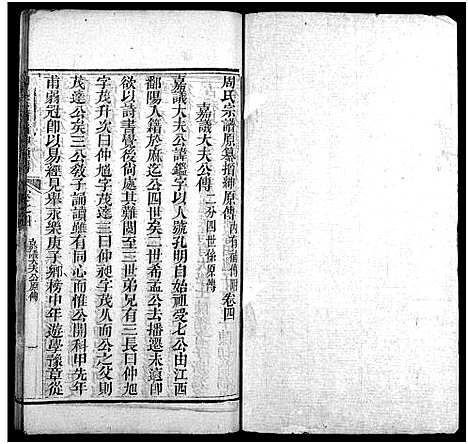 周氏宗譜原纂搢紳原傳 卷四
嘉議大夫公傳 二分四世徐原傳
嘉議大夫公諱鑑字以人號孔明自始祖受七公由江西
鄱陽人籍於麻迄公四世矣二世希孟公去播遷未遠即
欲以詩書覺後尚處其難閱至三世弟兄有三長曰仲旭
字茂升次曰仲旭字茂達三曰仲昶字茂乆而公之父則
茂達公矣三公教子誦讀雖有同心而惟公開科甲先年
甫弱冠即以易經見舉永樂庚子鄉榜中年遊學豫章從
嘉議大夫公原傳
一